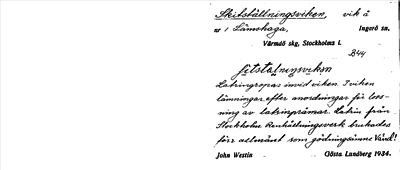 Skitställningsviken, vik å
nr 1 Lämshaga, Ingarö sn,
Värmdö skg, Stockholms l.
B44
Latringropar invid viken. I viken
lämningar efter anordningar för loss-
ning av latrinprämar. Latrin från
Stockholms Renhållningsverk brukades
förr allmänt som gödningsämne. Vänd!
John Westin Gösta Lundberg 1934.